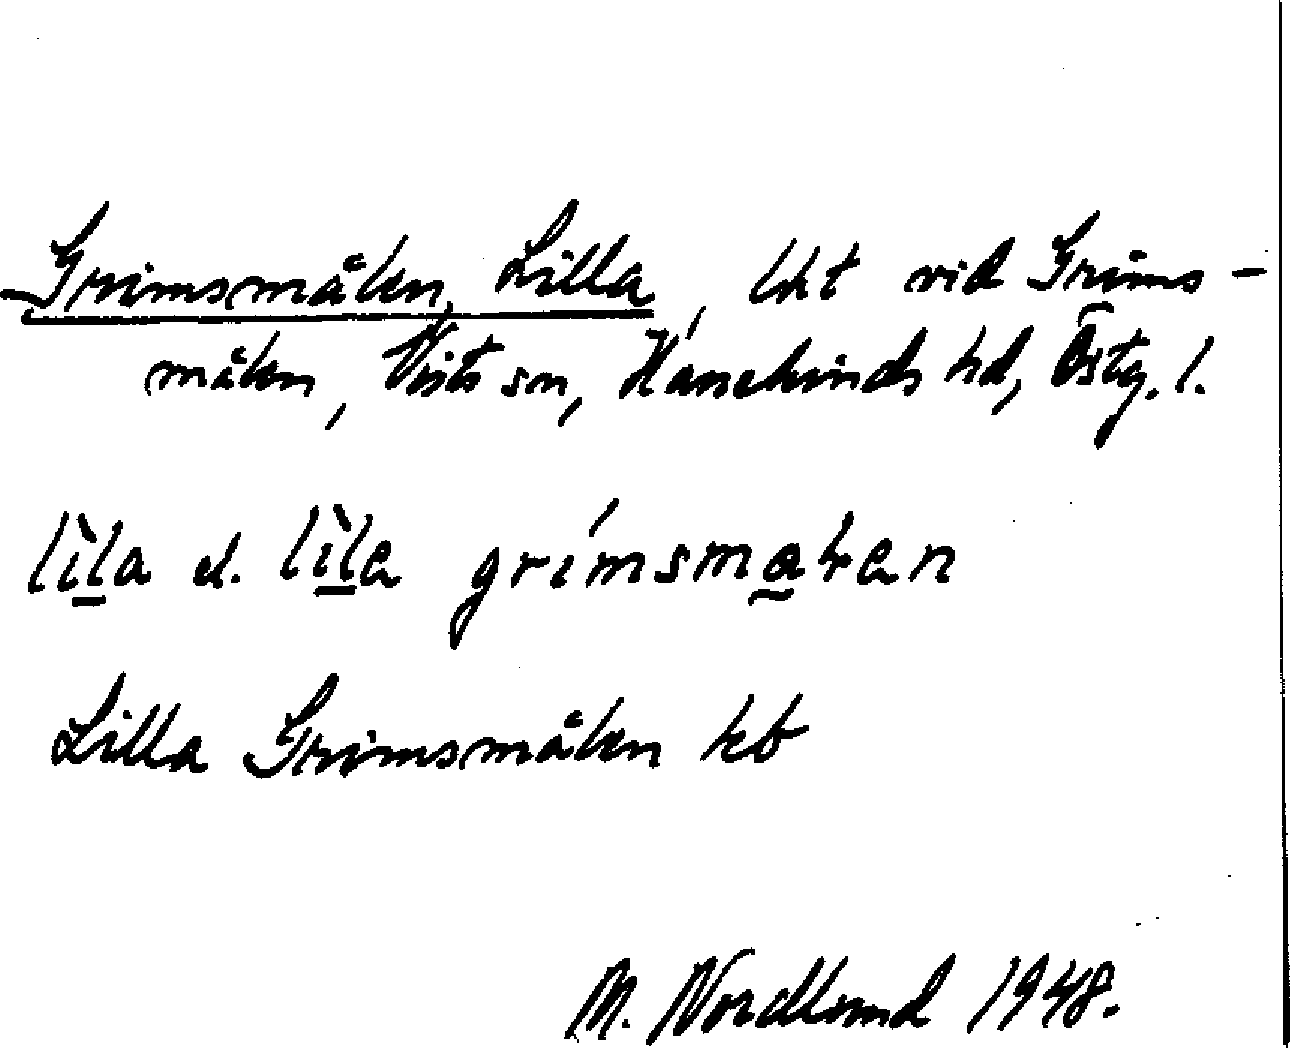 Grimsmålen, Lilla, lht vid Grims-
målen, Vists sn, Hanekinds hd, Östg. l.
lìla el. lìla grímsmałan
Lilla Grimsmålen kb
M. Nordlund 1948.